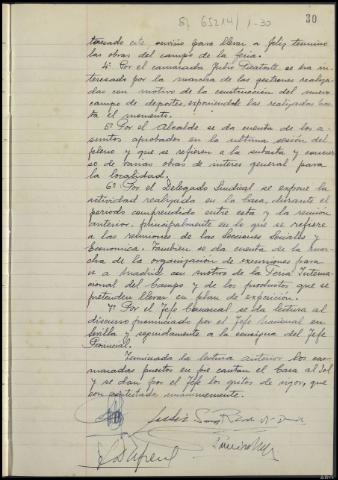 30
tersado este camino para llevar a feliz termino
las obras del campo de la feria.
4º Por el camarada Julio se ha in-
teresado por la marcha de las gestiones realiza-
das con motivo de la construcción del nuevo
campo de deportes, exponiendole las realizadas has-
ta el momento.
5º Por el Alcalde se da cuenta de los a-
suntos aprobados en la ultima sesión del
pleno y que se refieren a la subasta y concur-
so de varias obras de interes general para
la localidad.
6º Por el Delegado Sindical se expone la
actividad realizada en la Casa, durante el
periodo comprendido entre esta y la reunion
anterior, principalmente en lo que se refiere
a las reuniones de las Secciones Sociales y
Economica. Tambien se da cuenta de la mar-
cha de la organización de excursiones para
ir a Madrid con motivo de la Feria Interna-
cional del Campo y de los productos que se
pretenden llevar en plan de exposición.
7º Por el Jefe Comarcal se da lectura al
discurso pronunciado por el Jefe Nacional en
Sevilla y seguidamente a la consigna del Jefe
Provincial.
Terminada la lectura anterior los ca-
maradas puestos en pie cantan el Cara al Sol
y se dan por el Jefe los gritos de rigor, que
son contestado unanimemente.